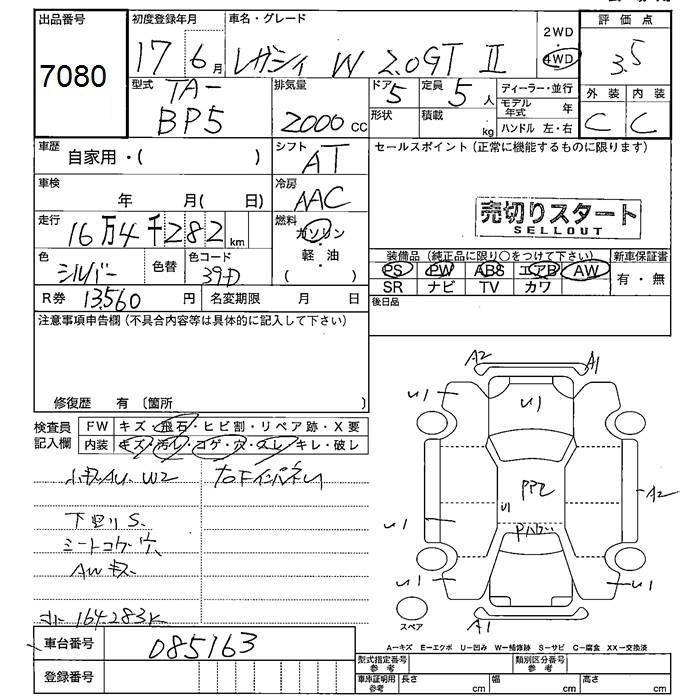 出品番号
7080
初度登録年月
17年 6月
車名・グレード
レガシィ W 2.0GT II
2WD
4WD
評価点
3.5
外装 内装
C C
型式
TA-
BP5
排気量
2000cc
ドア 5
形状
定員 5人
積載 kg
ディーラー・並行
モデル年式 年
ハンドル 左・右
車歴 自家用・( )
シフト
AT
セールスポイント (正常に機能するものに限ります)
車検 年 月( 日)
冷房
AAC
売切りスタート
SELLOUT
走行
16万4千282km
燃料
ガソリン
・
軽・油
( )
色
シルバー
色替
色コード
39D
装備品 (純正品に限り○をつけて下さい)
PS PW ABS エアB AW
SR ナビ TV カワ
新車保証書
有・無
R券 13,560円
名変期限 月 日
後日品
注意事項申告欄 (不具合内容等は具体的に記入して下さい)
修復歴 有 〔箇所
検査員
記入欄
FW キズ・飛石・ヒビ割・リペア跡・X要
内装 キズ・汚レ・コゲ・穴・スレ・キレ・破レ
W2
下回りS
シートコゲ 穴
AWキズ
164283K
A2 A1
U1 U1
PP2
U1
A2
U1
U1 U1
A1
スペア
A-キズ E-エクボ U-凹み W-補修跡 S-サビ C-腐食 XX-交換済
車台番号 085163
登録番号
型式指定番号
参考
類別区分番号
参考
車庫証明用
参考
長さ cm
幅 cm
高さ cm